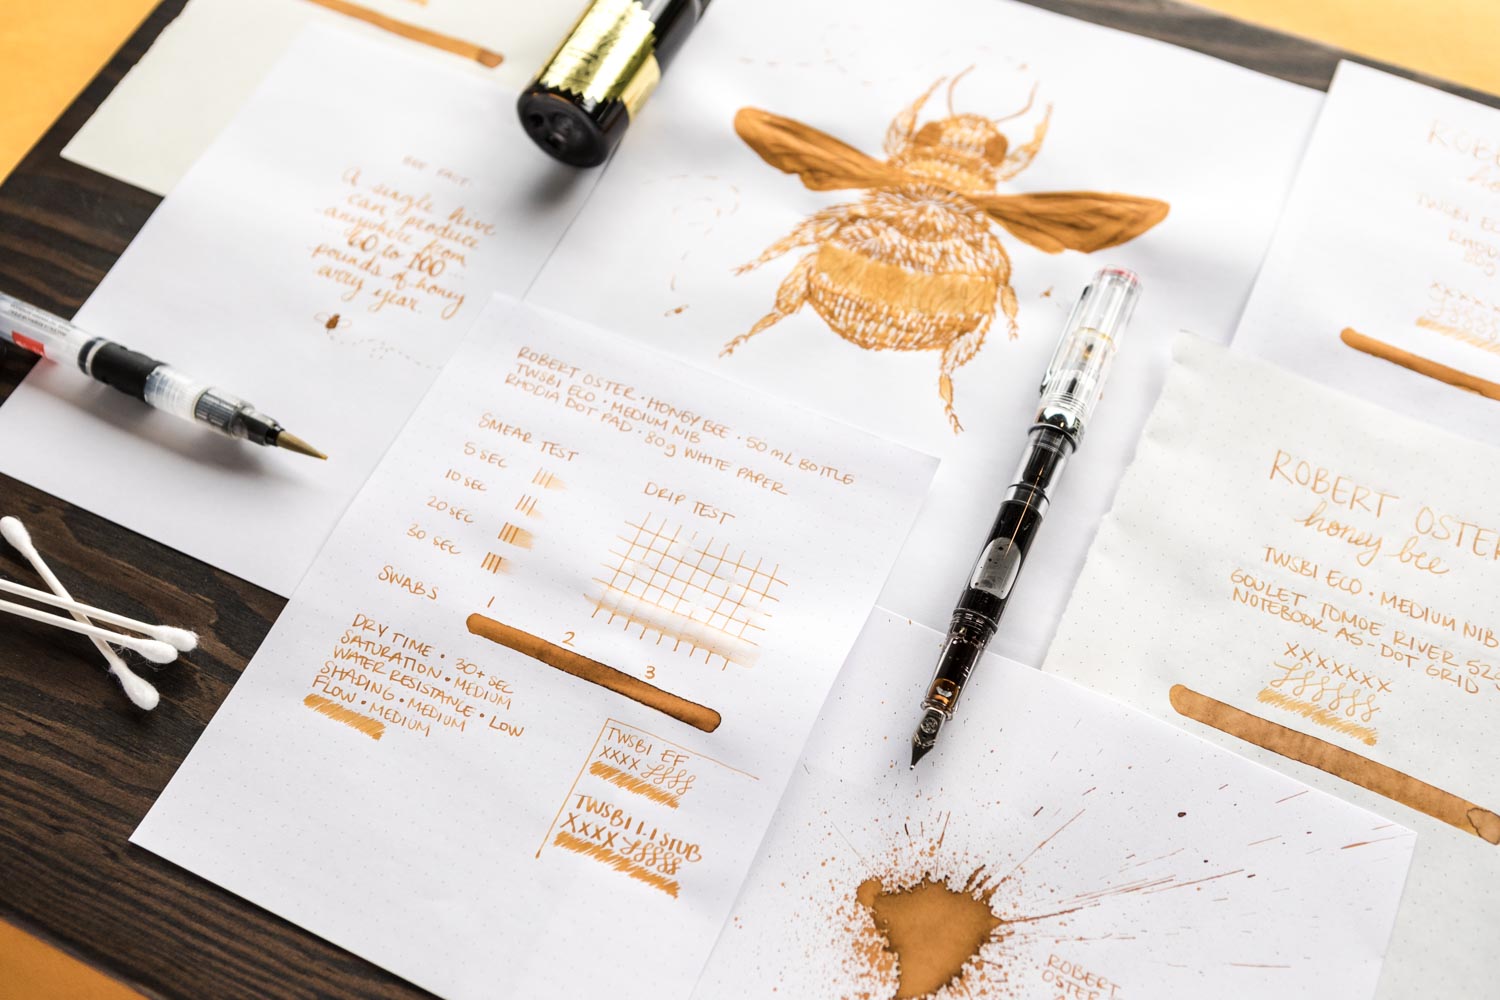 BEE FACT:
A single hive
can produce
anywhere from
40 to 100
pounds of honey
every year.
ROBERT OSTER • HONEY BEE • 50 mL BOTTLE
TWSBI ECO • MEDIUM NIB
RHODIA DOT PAD • 80g WHITE PAPER
SMEAR TEST
5 SEC
10 SEC
20 SEC
30 SEC
DRIP TEST
SWABS
1
2
3
DRY TIME • 30+ SEC
SATURATION • MEDIUM
WATER RESISTANCE • LOW
SHADING • MEDIUM
FLOW • MEDIUM
TWSBI EF
XXXX
TWSBI 1.1 STUB
XXXX
TWSBI
ROBERT OSTER
honey bee
TWSBI ECO • MEDIUM NIB
GOULET TOMOE RIVER 52g
NOTEBOOK A5 - DOT GRID
XXXXXXX
ROBERT
OSTER